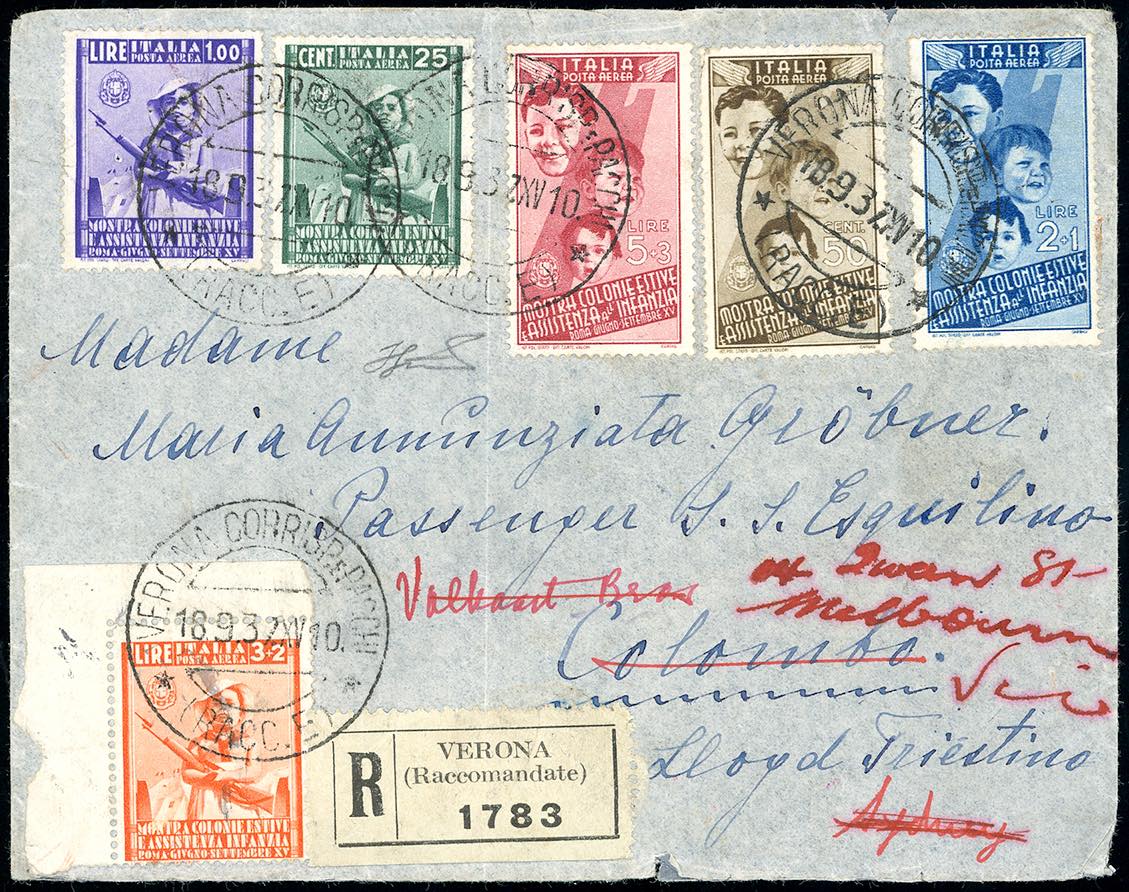 LIRE ITALIA 1.00
POSTA AEREA
MOSTRA COLONIE ESTIVE
E ASSISTENZA INFANZIA
ROMA GIVGNO-SETTEMBRE XV
CENT. ITALIA 25
POSTA AEREA
MOSTRA COLONIE ESTIVE
E ASSISTENZA INFANZIA
ROMA GIVGNO-SETTEMBRE XV
ITALIA
POSTA AEREA
LIRE
5+3
MOSTRA COLONIE ESTIVE
E ASSISTENZA ALL' INFANZIA
ROMA GIUGNO-SETTEMBRE XV
ITALIA
POSTA AEREA
CENT.
50
MOSTRA COLONIE ESTIVE
E ASSISTENZA ALL' INFANZIA
ROMA GIUGNO-SETTEMBRE XV
ITALIA
POSTA AEREA
LIRE
2+1
MOSTRA COLONIE ESTIVE
E ASSISTENZA ALL' INFANZIA
ROMA GIUGNO-SETTEMBRE XV
VERONA CORRISP. PACCHI
18.9.37.XV 10
(RACC. E)
VERONA CORRISP. PACCHI
18.9.37.XV 10
(RACC. E)
VERONA CORRISP. PACCHI
18.9.37.XV 10
(RACC. E)
Madame
Maria Annunziata Gröbner.
Passenger S. S. Esquilino
Volkaart Bros
Swan St
Melbourne
Colombo.
Vic
Lloyd Triestino
Sydney
VERONA CORRISP. PACCHI
18.9.37.XV 10.
(RACC. E)
LIRE ITALIA 3+2
POSTA AEREA
MOSTRA COLONIE ESTIVE
E ASSISTENZA INFANZIA
ROMA GIVGNO-SETTEMBRE XV
R
VERONA
(Raccomandate)
1783